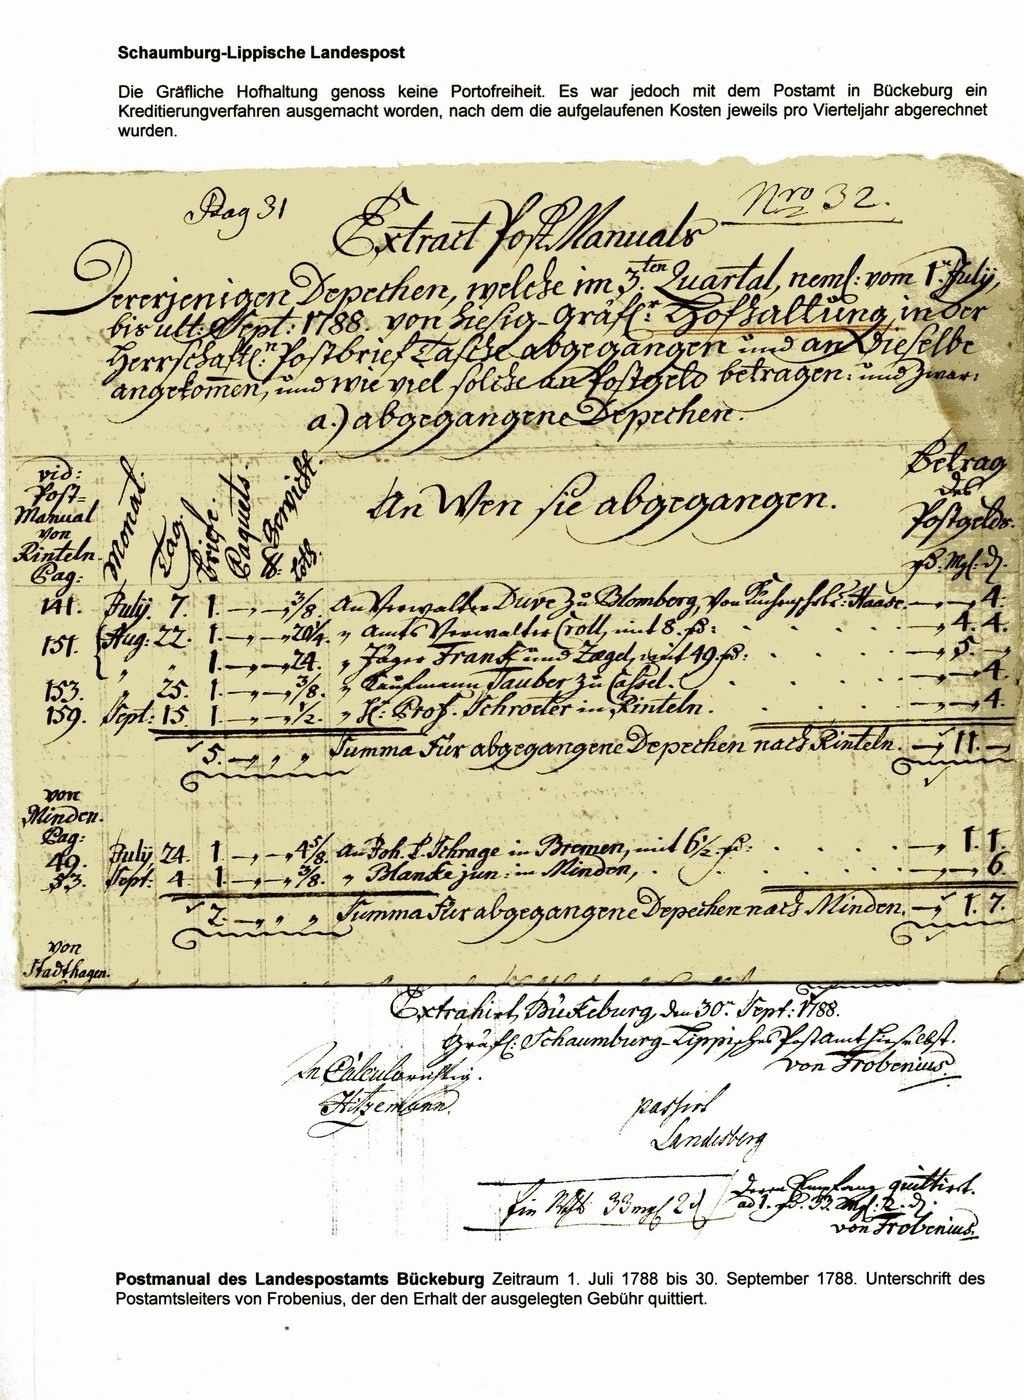 Schaumburg-Lippische Landespost
Die Gräfliche Hofhaltung genoss keine Portofreiheit. Es war jedoch mit dem Postamt in Bückeburg ein
Kreditierungverfahren ausgemacht worden, nach dem die aufgelaufenen Kosten jeweils pro Vierteljahr abgerechnet
wurden.
Pag 31
Nro 32.
Extract Post Manuals
Dererjenigen Depechen, welche im 3ten Quartal, neml: vom 1. July,
bis ult: Sept: 1788. von hiesig-Gräfl:r Hofhaltung, in der
Herrschaftl:n Postbrief Tasche abgegangen und an Dieselbe
angekom̄en, und wie viel solche an Postgeld betragen: und zwar:
a.) abgegangene Depechen.
vid: Post= Manual von Rinteln. Pag: Monat. Tag. Briefe. Paquets. Gewicht. Loth. An Wen sie abgegangen. Betrag des Postgelds. Mgl: d.
141. July. 7. 1. 3/8. An Verwalter Duve zu Blomberg, von Haase. 4.
151. Aug: 22. 1. 20 1/4. " Amts Verwalter Croll, mit 8. 4. 4.
" " 1. 24. " Jäger Franck und Zægel, mit 49. 5.
153. " 25. 1. 3/8. " Kaufmann Tauber zu Cassel. 4.
159. Sept: 15. 1. 1/2. " H: Prof. Schroeter in Rinteln. 4.
5. " " " Summa Für abgegangene Depechen nach Rinteln. 11.
von Minden. Pag:
49. July, 24. 1. 4 5/8. An Joh. Schrage in Bremen, mit 6 1/2. 1. 1.
53. Sept: 4. 1. 3/8. " Blancke jun: in Minden, 6.
2. " " " Summa Für abgegangene Depechen nach Minden. 1. 7.
von
Stadthagen.
Extrahirt, Bückeburg, den 30. Sept: 1788.
Gräfl: Schaumburg-Lippisches Postamt hieselbst.
von Frobenius.
In Calculo richtig.
Hitzemann.
passirt
Landesberg
Ein 33 mgl 2 d
deren Empfang quittirt.
ad 1. 33. Mgl: 2. d.
von Frobenius.
Postmanual des Landespostamts Bückeburg Zeitraum 1. Juli 1788 bis 30. September 1788. Unterschrift des
Postamtsleiters von Frobenius, der den Erhalt der ausgelegten Gebühr quittiert.